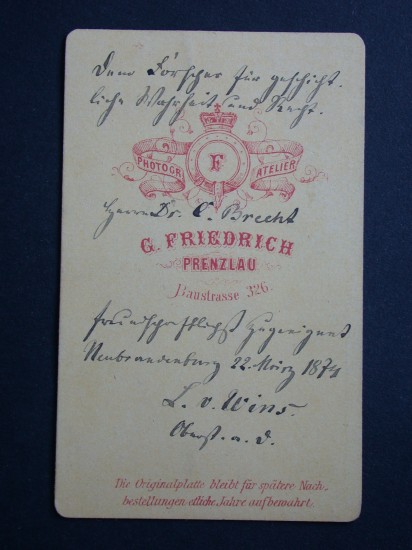 Dem Forscher für geschicht-
liche Wahrheit und Recht.
PHOTOGR. F ATELIER
Herrn Dr. C. Brecht
G. FRIEDRICH
PRENZLAU
Baustrasse 326
freundschaftlichst zugeeignet
Neubrandenburg 22. März 1874
L. v. Wins.
Oberst. a. d.
Die Originalplatte bleibt für spätere Nach-
bestellungen etliche Jahre aufbewahrt.